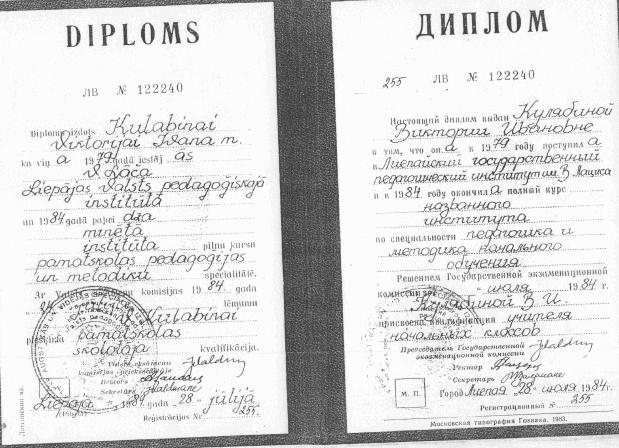 DIPLOMS
ЛВ № 122240
Diploms izdots Kuļabinai
Viktorijai Ivana m.
ka viņa 1979 gadā iestājās
V. Lāča
Liepājas Valsts pedagoģiskajā
institūtā
un 1984 gadā pabeidza
minētā
institūta pilnu kursu
pamatskolas pedagoģijas
un metodiku specialitātē.
Ar Valsts komisijas 1984. gada
lēmumu
Kuļabinai
piešķirta pamatskolas
skolotāja kvalifikācija.
Valsts eksāmenu
komisijas priekšsēdētājs
Rektors
Sekretārs
Liepājā 1984. gada "28" jūlijā
Reģistrācijas Nr. 255.
ДИПЛОМ
255 ЛВ № 122240
Настоящий диплом выдан Кулябиной
Виктории Ивановне
в том, что она в 1979 году поступила
в Лиепайский государственный
педагогический институт им. В. Лациса
и в 1984 году окончила полный курс
названного
института
по специальности педагогика и
методика начального
обучения.
Решением Государственной экзаменационной
комиссии от июля 1984 г.
Кулябиной В. И.
присвоена квалификация учителя
начальных классов
Председатель Государственной
экзаменационной комиссии
Ректор
Секретарь
М. П.
Город Лиепая "28" июля 1984 г.
Регистрационный № 255
Московская типография Гознака. 1983.